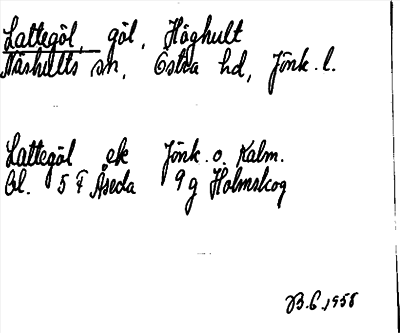 Lattegöl, göl, Höghult
Näshults sn, Östra hd, Jönk. l.
Lattegöl ek Jönk. o. Kalm.
bl. 5 F Åseda 9 g Holmskog
B.E. 1958